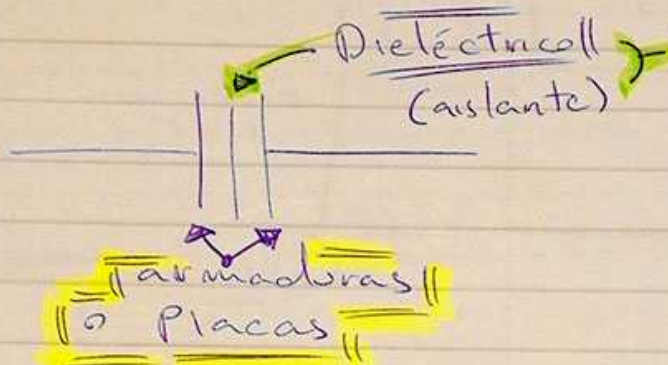 Dieléctrico
(aislante)
armaduras
o Placas